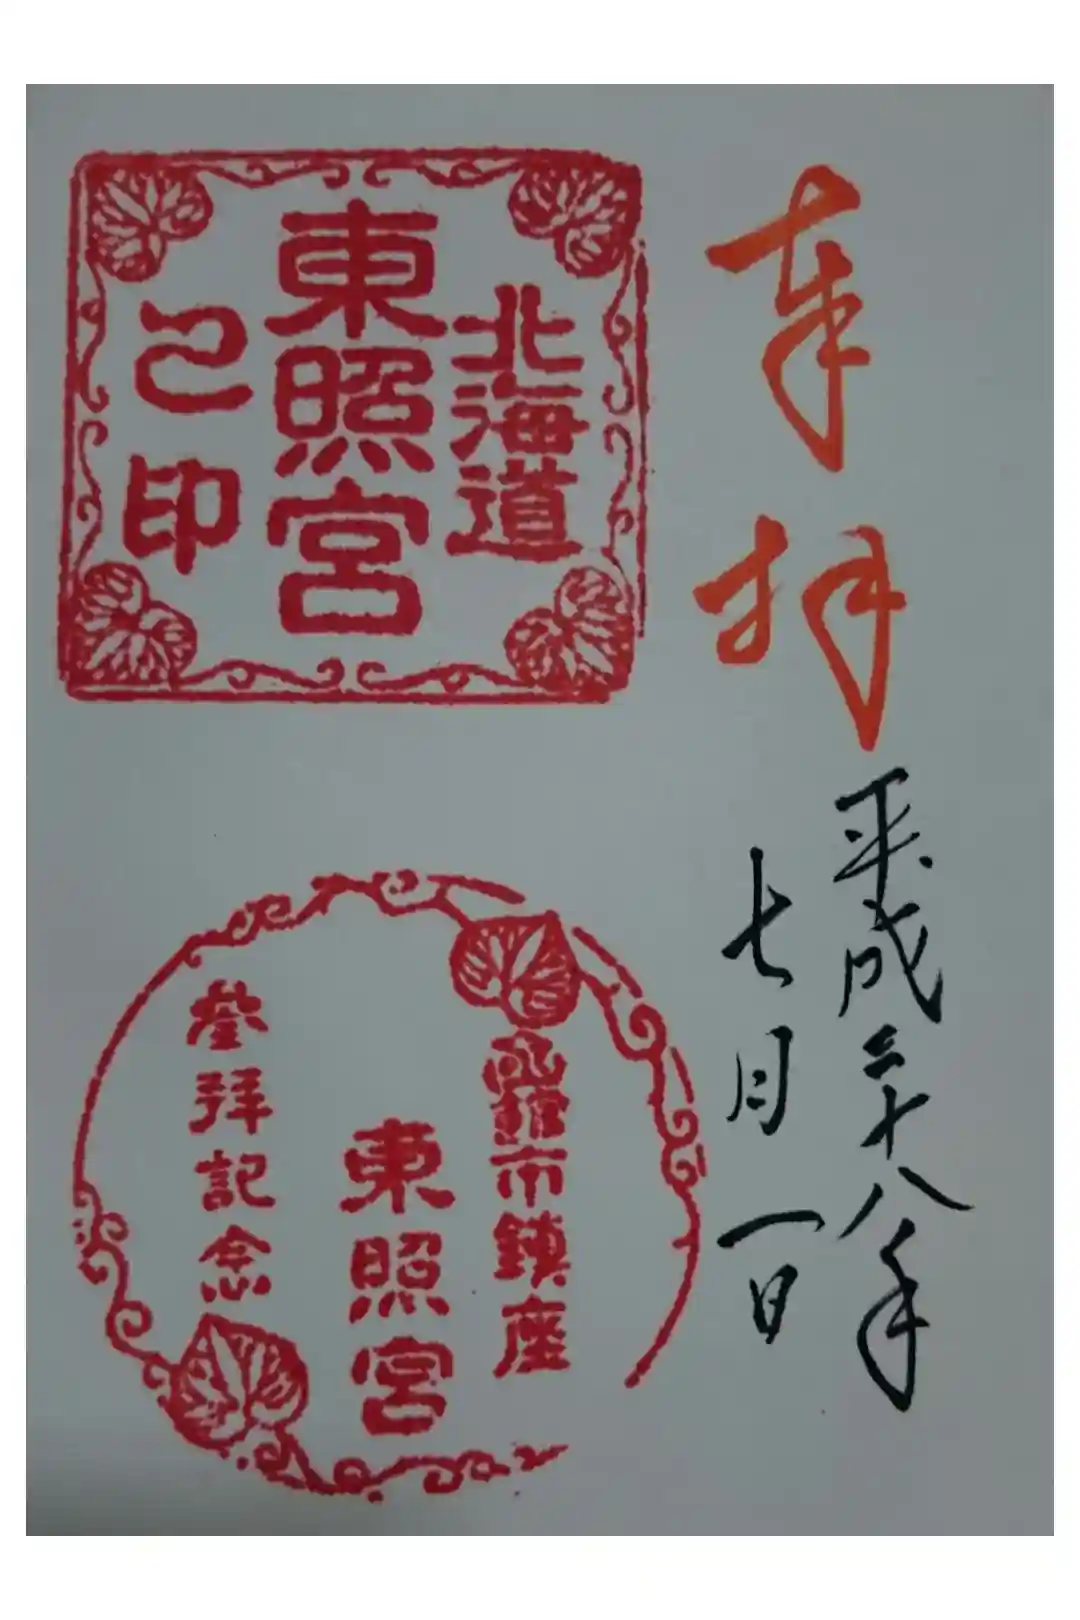 奉拝
平成二十八年
七月一日
北海道
東照宮
之印
函館市鎮座
東照宮
參拜記念